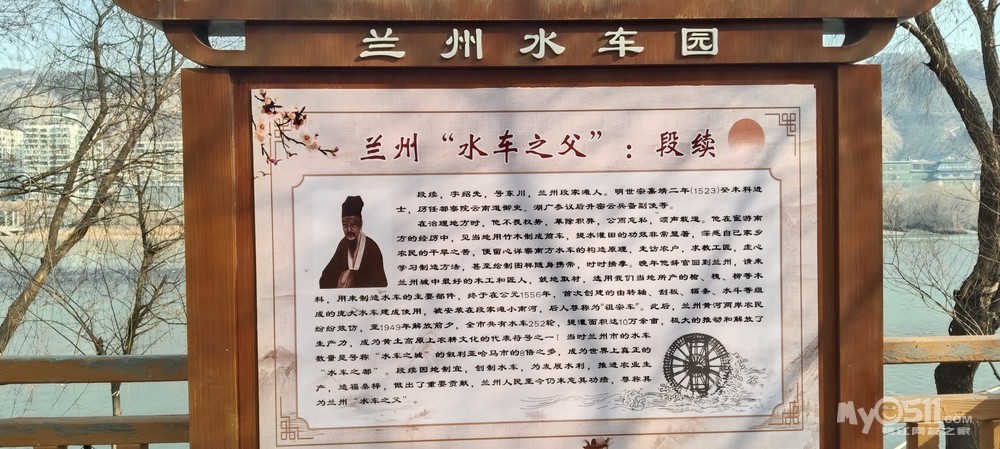 兰州水车园
兰州“水车之父”：段续
段续，字绍先，号东川，兰州段家滩人。明世宗嘉靖二年(1523)癸未科进
士，历任都察院云南道御史、湖广参议后升密云兵备副使等。
在治理地方时，他不畏权势，革除积弊，公而忘私，颂声载道。他在宦游南
方的经历中，见当地用竹木制成筒车，提水灌田的功效非常显著，深感自己家乡
农民的干旱之苦，便留心详察南方水车的构造原理，走访农户，求教工匠，虚心
学习制造方法，甚至绘制图样随身携带，时时揣摩。晚年他辞官回到兰州，请来
兰州城中最好的木工和匠人，就地取材，选用我们当地所产的榆、槐、柳等木
料，用来制造水车的主要部件，终于在公元1556年，首次创建的由转轴、刮板、辐条、水斗等组
成的庞大水车建成使用，被安装在段家滩小南河，后人尊称为“祖宗车”。此后，兰州黄河两岸农民
纷纷效仿，至1949年解放前夕，全市共有水车252轮，提灌面积达10万余亩，极大的推动和解放了
生产力，成为黄土高原上农耕文化的代表符号之一；当时兰州市的水车
数量是号称“水车之城”的叙利亚哈马市的8倍之多，成为世界上真正的
“水车之都”。段续因地制宜，创制水车，为发展水利，推进农业生
产，造福桑梓，做出了重要贡献，兰州人民至今仍未忘其功绩，尊称其
为兰州“水车之父”。
My0511.com